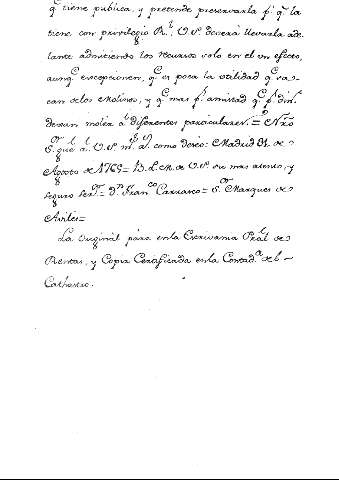 q.e tiene publica, y pretende preservarla p.r q.e la
tiene con privilegio R.l, V.S. deverá llevarla ade-
lante admitiendo los recursos solo en el un efecto,
aunq.e excepcionen, q.e es poca la utilidad q.e sa-
can delos Molinos, y q.e mas p.r amistad q.e p.r din.o
dexan moler a diferentes particulares. = Nro
S.or gue. a V.S. m.s a.s como deseo: Madrid 31. de
Agosto de 1765 = B. L. M. de V.S. su mas atento, y
seguro ser.or = D.n Fran.co Carrasco = S.or Marques de
Aviles =
La Original para en la Escrivania Pral de
Rentas, y Copia Certificada en la Contad.a de
Cathastro.